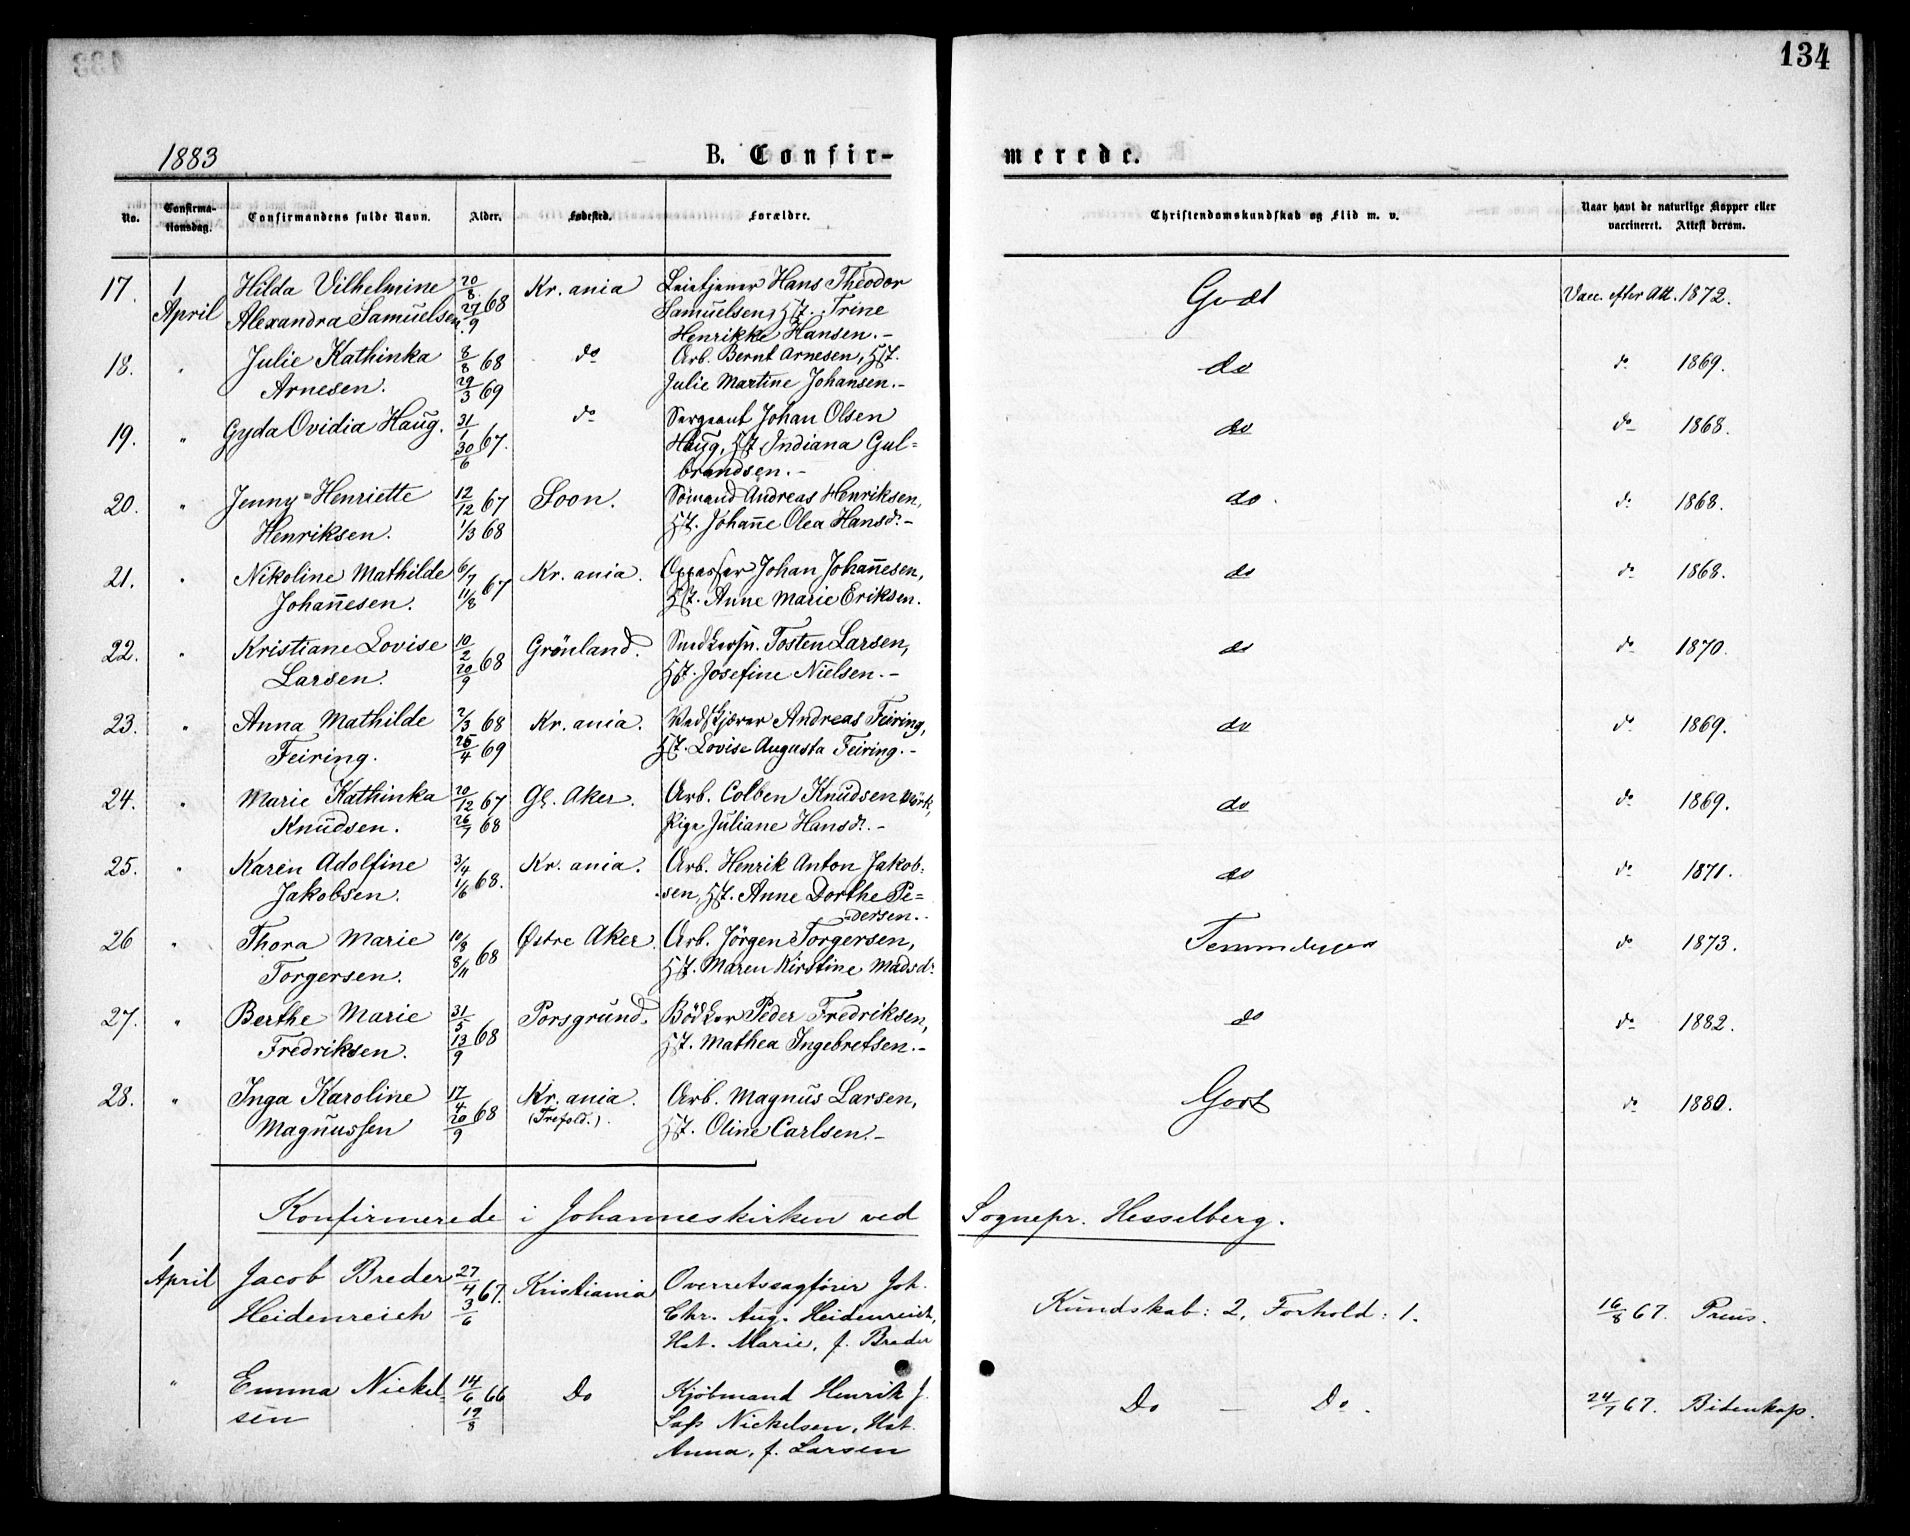 134
1883
B. Confir-
merede.
No.
Confirma-
tionsdag.
Confirmandens fulde Navn.
Alder.
Fødested.
Forældre.
Christendomskundskab og Flid m. v.
Naar havt de naturlige Kopper eller
vaccineret. Attest derom.
17. 1 Hilda Vilhelmine 20/8 68 Kr.ania Leietjener Hans Theodor Godt Vacc. efter Att. 1872.
April Alexandra Samuelsen. 29/9 Samuelsen, Hst. Trine
Henrikke Hansen.-
18. " Julie Kathinka 8/8 68 do Arb. Bernt Arnesen, Hst. do do 1869.
Arnesen. 29/3 69 Julie Martine Johansen.-
19. " Gyda Ovidia Haug. 31/1 67. do Sergeant Johan Olsen do do 1868.
30/6 Haug, Hst. Indiana Gul=
brandsen.-
20. " Jenny=Henriette 12/12 67 Soon. Sömand Andreas Henriksen, do. do 1868.
Henriksen. 1/3 68 Hst. Johanne Olea Hansd.-
21. " Nikoline Mathilde 6/7 67 Kr.ania. Oppasser Johan Johannesen, do do 1868.
Johannesen. 11/8 Hst. Anne Marie Eriksen.
22. " Kristiane Lovise 10/2 68 Grönland. Snedkersv. Tosten Larsen, do do 1870.
Larsen. 20/9 Hst. Josefine Nielsen.-
23. " Anna Mathilde 2/3 68 Kr.ania. Andreas Feiring, do do 1869.
Feiring. 25/4 69 Hst. Lovise Augusta Feiring.-
24. " Marie Kathinka 20/12 67 Gl. Aker. Arb. Colben Knudsen Mörk, do do 1869.
Knudsen. 26/7 68 Pige Juliane Hansd.-
25. " Karen Adolfine 3/4 68. Kr.ania. Arb. Henrik Anton Jakob- do do 1871.
Jakobsen. 1/6 sen, Hst. Anne Dorthe Pe=
dersen.
26 " Thora Marie 10/8 68 Østre Aker. Arb. Jörgen Torgersen, do 1873.
Torgersen. 8/11 Hst. Maren Kirstine Madsd.
27. " Berthe Marie 31/5 68 Porsgrund. Bödker Peder Fredriksen, do do 1882.
Fredriksen. 13/9 Hst. Mathea Ingebretsen.-
28. " Inga Karoline 17/4 68 Kr.ania. Arb. Magnus Larsen, Godt do 1880.
Magnussen 20/9 (Trefold.). Hst. Oline Carlsen.-
Konfirmerede i Johanneskirken ved Sognepr. Hesselberg.
1
April Jacob Breder 27/4 67. Kristiania Overretssagförer Joh.
Heidenreich 3/6 Chr. Aug. Heidenreich, Kundskab: 2, Forhold: 1. 16/8 67. Preus.
Hst. Marie, f. Breder
" Emma Nickel- 14/6 66 Do Kjöbmand Henrik J. Do — Do. 24/7 67. Bidenkap.
sen 19/8 Nickelsen, Hst.
Anna, f. Larsen